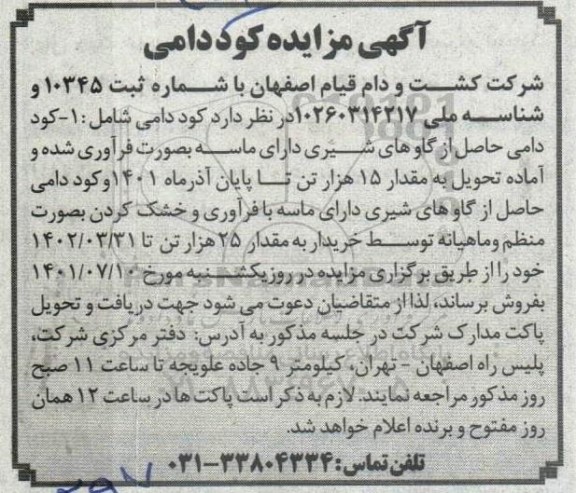 آگهی مزایده کود دامی
شرکت کشت و دام قیام اصفهان با شماره ثبت ۱۰۳۴۵ و
شناسه ملی ۱۰۲۶۰۳۱۴۲۱۷در نظر دارد کود دامی شامل :۱-کود
دامی حاصل از گاو های شیری دارای ماسه بصورت فرآوری شده و
آماده تحویل به مقدار ۱۵ هزار تن تا پایان آذرماه ۱۴۰۱وکود دامی
حاصل از گاو های شیری دارای ماسه با فرآوری و خشک کردن بصورت
منظم وماهیانه توسط خریدار به مقدار ۲۵ هزار تن تا ۱۴۰۲/۰۳/۳۱
خود را از طریق برگزاری مزایده در روز یکشنبه مورخ ۱۴۰۱/۰۷/۱۰
بفروش برساند، لذا از متقاضیان دعوت می شود جهت دریافت و تحویل
پاکت مدارک شرکت در جلسه مذکور به آدرس: دفتر مرکزی شرکت،
پلیس راه اصفهان - تهران، کیلومتر ۹ جاده علویجه تا ساعت ۱۱ صبح
روز مذکور مراجعه نمایند. لازم به ذکر است پاکت ها در ساعت ۱۲ همان
روز مفتوح و برنده اعلام خواهد شد.
تلفن تماس: ۳۳۸۰۴۳۳۴-۰۳۱